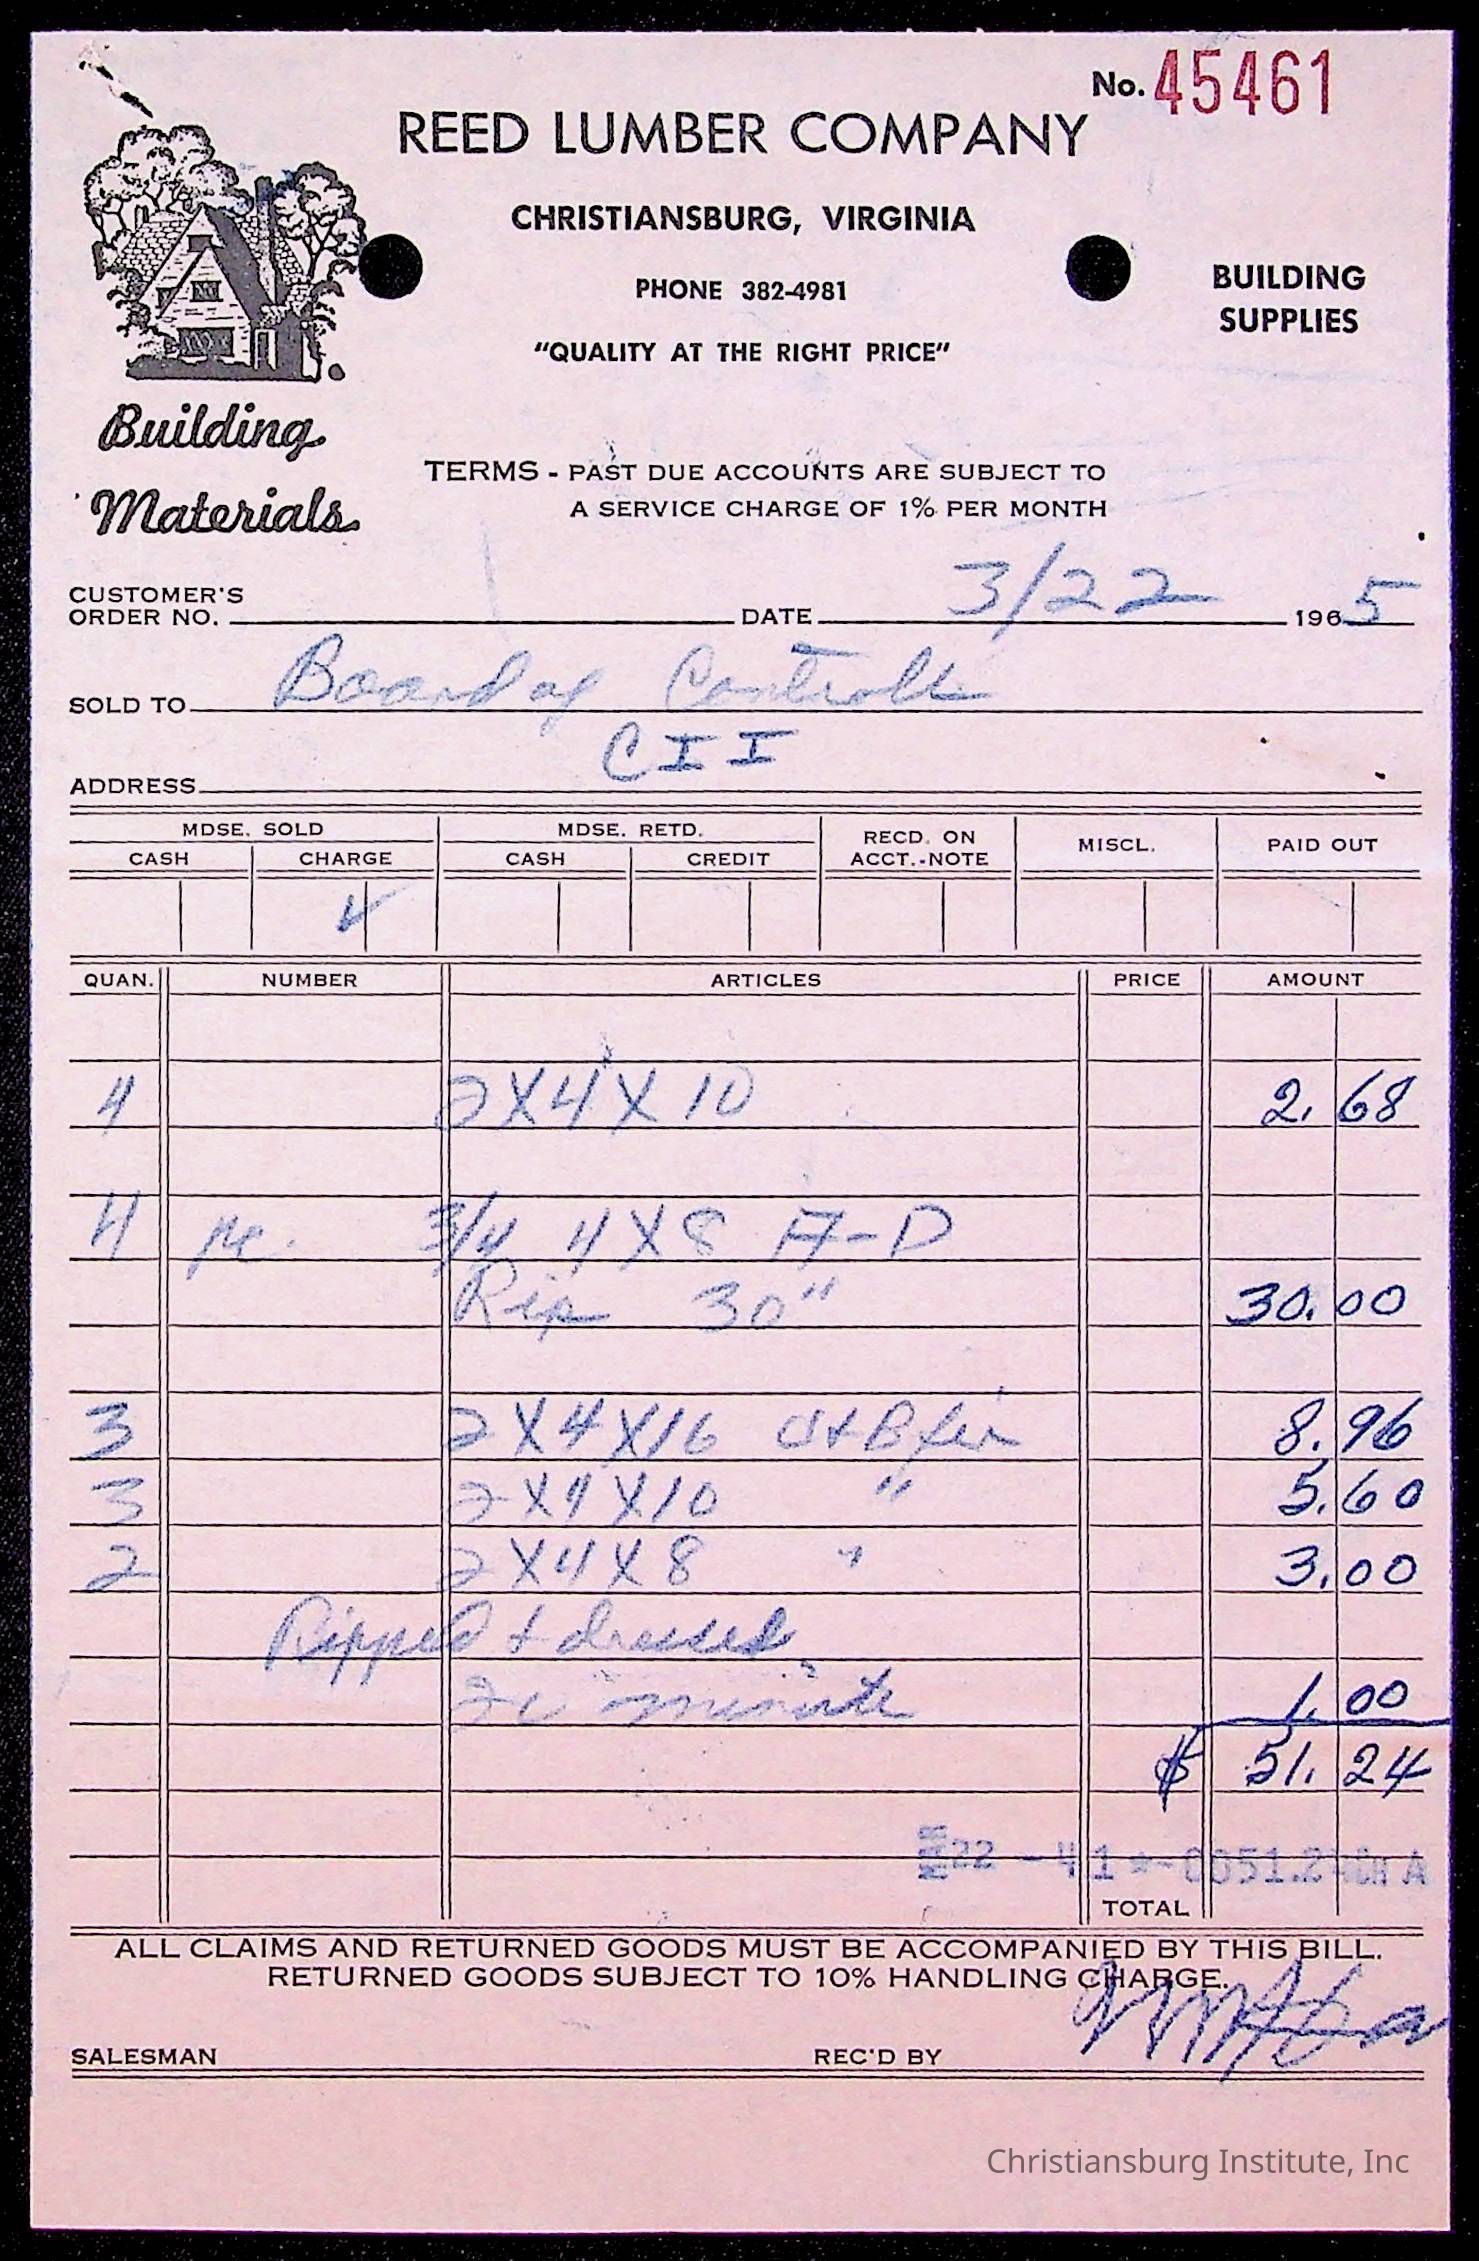 No. 45461
REED LUMBER COMPANY
CHRISTIANSBURG, VIRGINIA
PHONE 382-4981
"QUALITY AT THE RIGHT PRICE"
BUILDING
SUPPLIES
Building
Materials
TERMS - PAST DUE ACCOUNTS ARE SUBJECT TO
A SERVICE CHARGE OF 1% PER MONTH
CUSTOMER'S
ORDER NO. DATE 3/22 1965
SOLD TO Board of Controll
CII
ADDRESS
MDSE. SOLD MDSE. RETD. RECD. ON ACCT.-NOTE MISCL. PAID OUT
CASH CHARGE CASH CREDIT
✓
QUAN. NUMBER ARTICLES PRICE AMOUNT
4 2X4X10 2.68
4 pc. 3/4 4X8 A-D
Rip 30" 30.00
3 2X4X16 fir 8.96
3 2X4X10 " 5.60
2 2X4X8 " 3.00
Ripped + dressed
minute 1.00
$ 51.24
MAR 22 -41*-0051.24CH A
TOTAL
ALL CLAIMS AND RETURNED GOODS MUST BE ACCOMPANIED BY THIS BILL.
RETURNED GOODS SUBJECT TO 10% HANDLING CHARGE.
SALESMAN REC'D BY
Christiansburg Institute, Inc